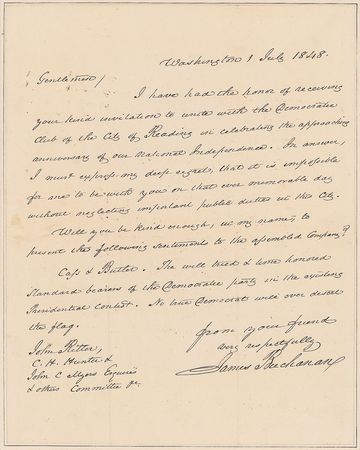 Washington 1 July 1848.
Gentlemen/
I have had the honor of receiving
your kind invitation to unite with the Democratic
Club of the City of Reading in celebrating the approaching
anniversary of our National Independence. In answer,
I must express my deep regret, that it is impossible
for me to be with you on that ever memorable day
without neglecting important public duties in this City.
Will you be kind enough, in my name, to
present the following sentiment to the assembled Company?
Cass & Butler. The well tried & time honored
Standard bearers of the Democratic party in the existing
Presidential contest. No true Democrat will ever desert
the flag.
from your friend
very respectfully
James Buchanan
John Ritter,
C. H. Hunter &
John C Myers Esquires
& others Committee &c.